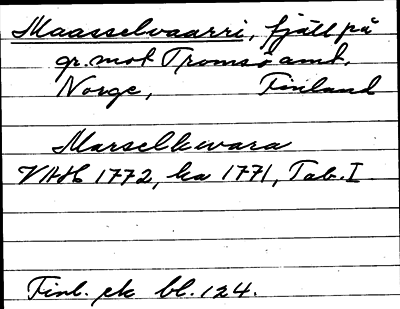 Maasselvaarri, fjäll på
gr. mot Tromsö amt.
Norge, Finland
Marselkwara
VAH 1772, ka 1771, Tab. I
Finl. ek bl. 124.